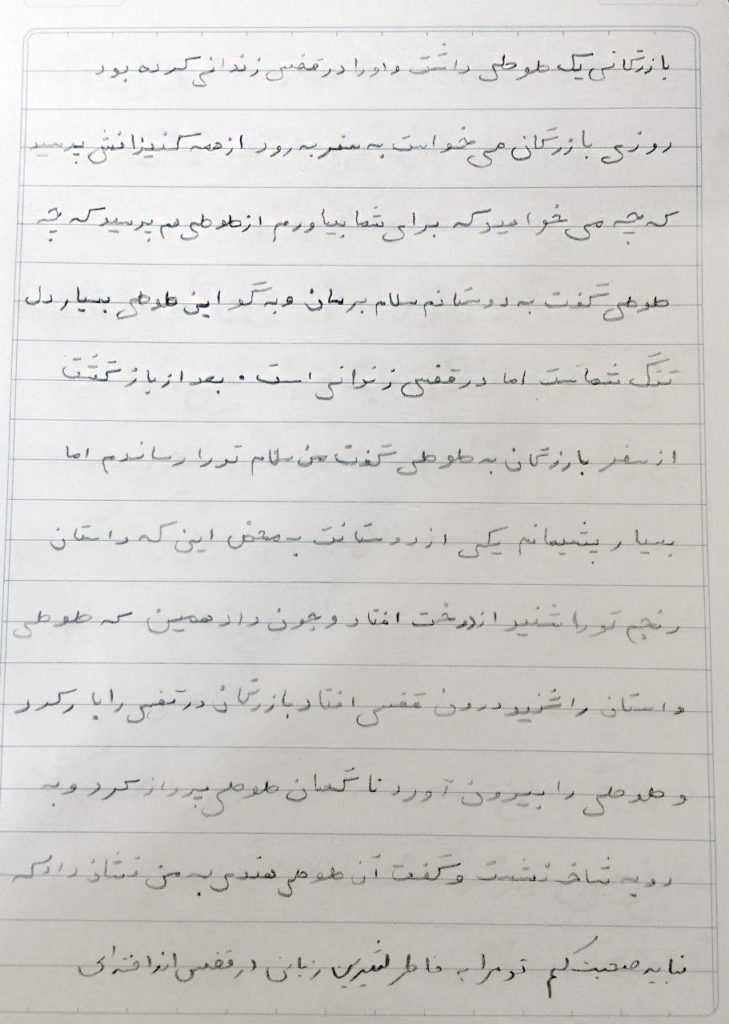 بازرگانی یک طوطی داشت و او را در قفس زندانی کرده بود
روزی بازرگان می خواست به سفر به رود از همه کنیزانش پرسید
که چه می خواهید که برای شما بیاورم از طوطی هم پرسید که چه
طوطی گفت به دوستانم سلام برسان و به گو این طوطی بسیار دل
تنگ شماست اما در قفس زندانی است . بعد از بازگشت
از سفر بازرگان به طوطی گفت من سلام تو را رساندم اما
بسیار پشیمانم یکی از دوستانت به محض این که داستان
رنج تو را شنید از درخت افتاد و جون داد همین که طوطی
داستان را شنید درون قفس افتاد بازرگان در قفس را باز کرد
و طوطی را بیرون آورد ناگهان طوطی پرواز کرد و به
رو به شاخه نشست و گفت آن طوطی هندی به من نشان داد که
نباید صحبت کنم تو مرا به خاطر شیرین زبانی در قفس انداخته ای